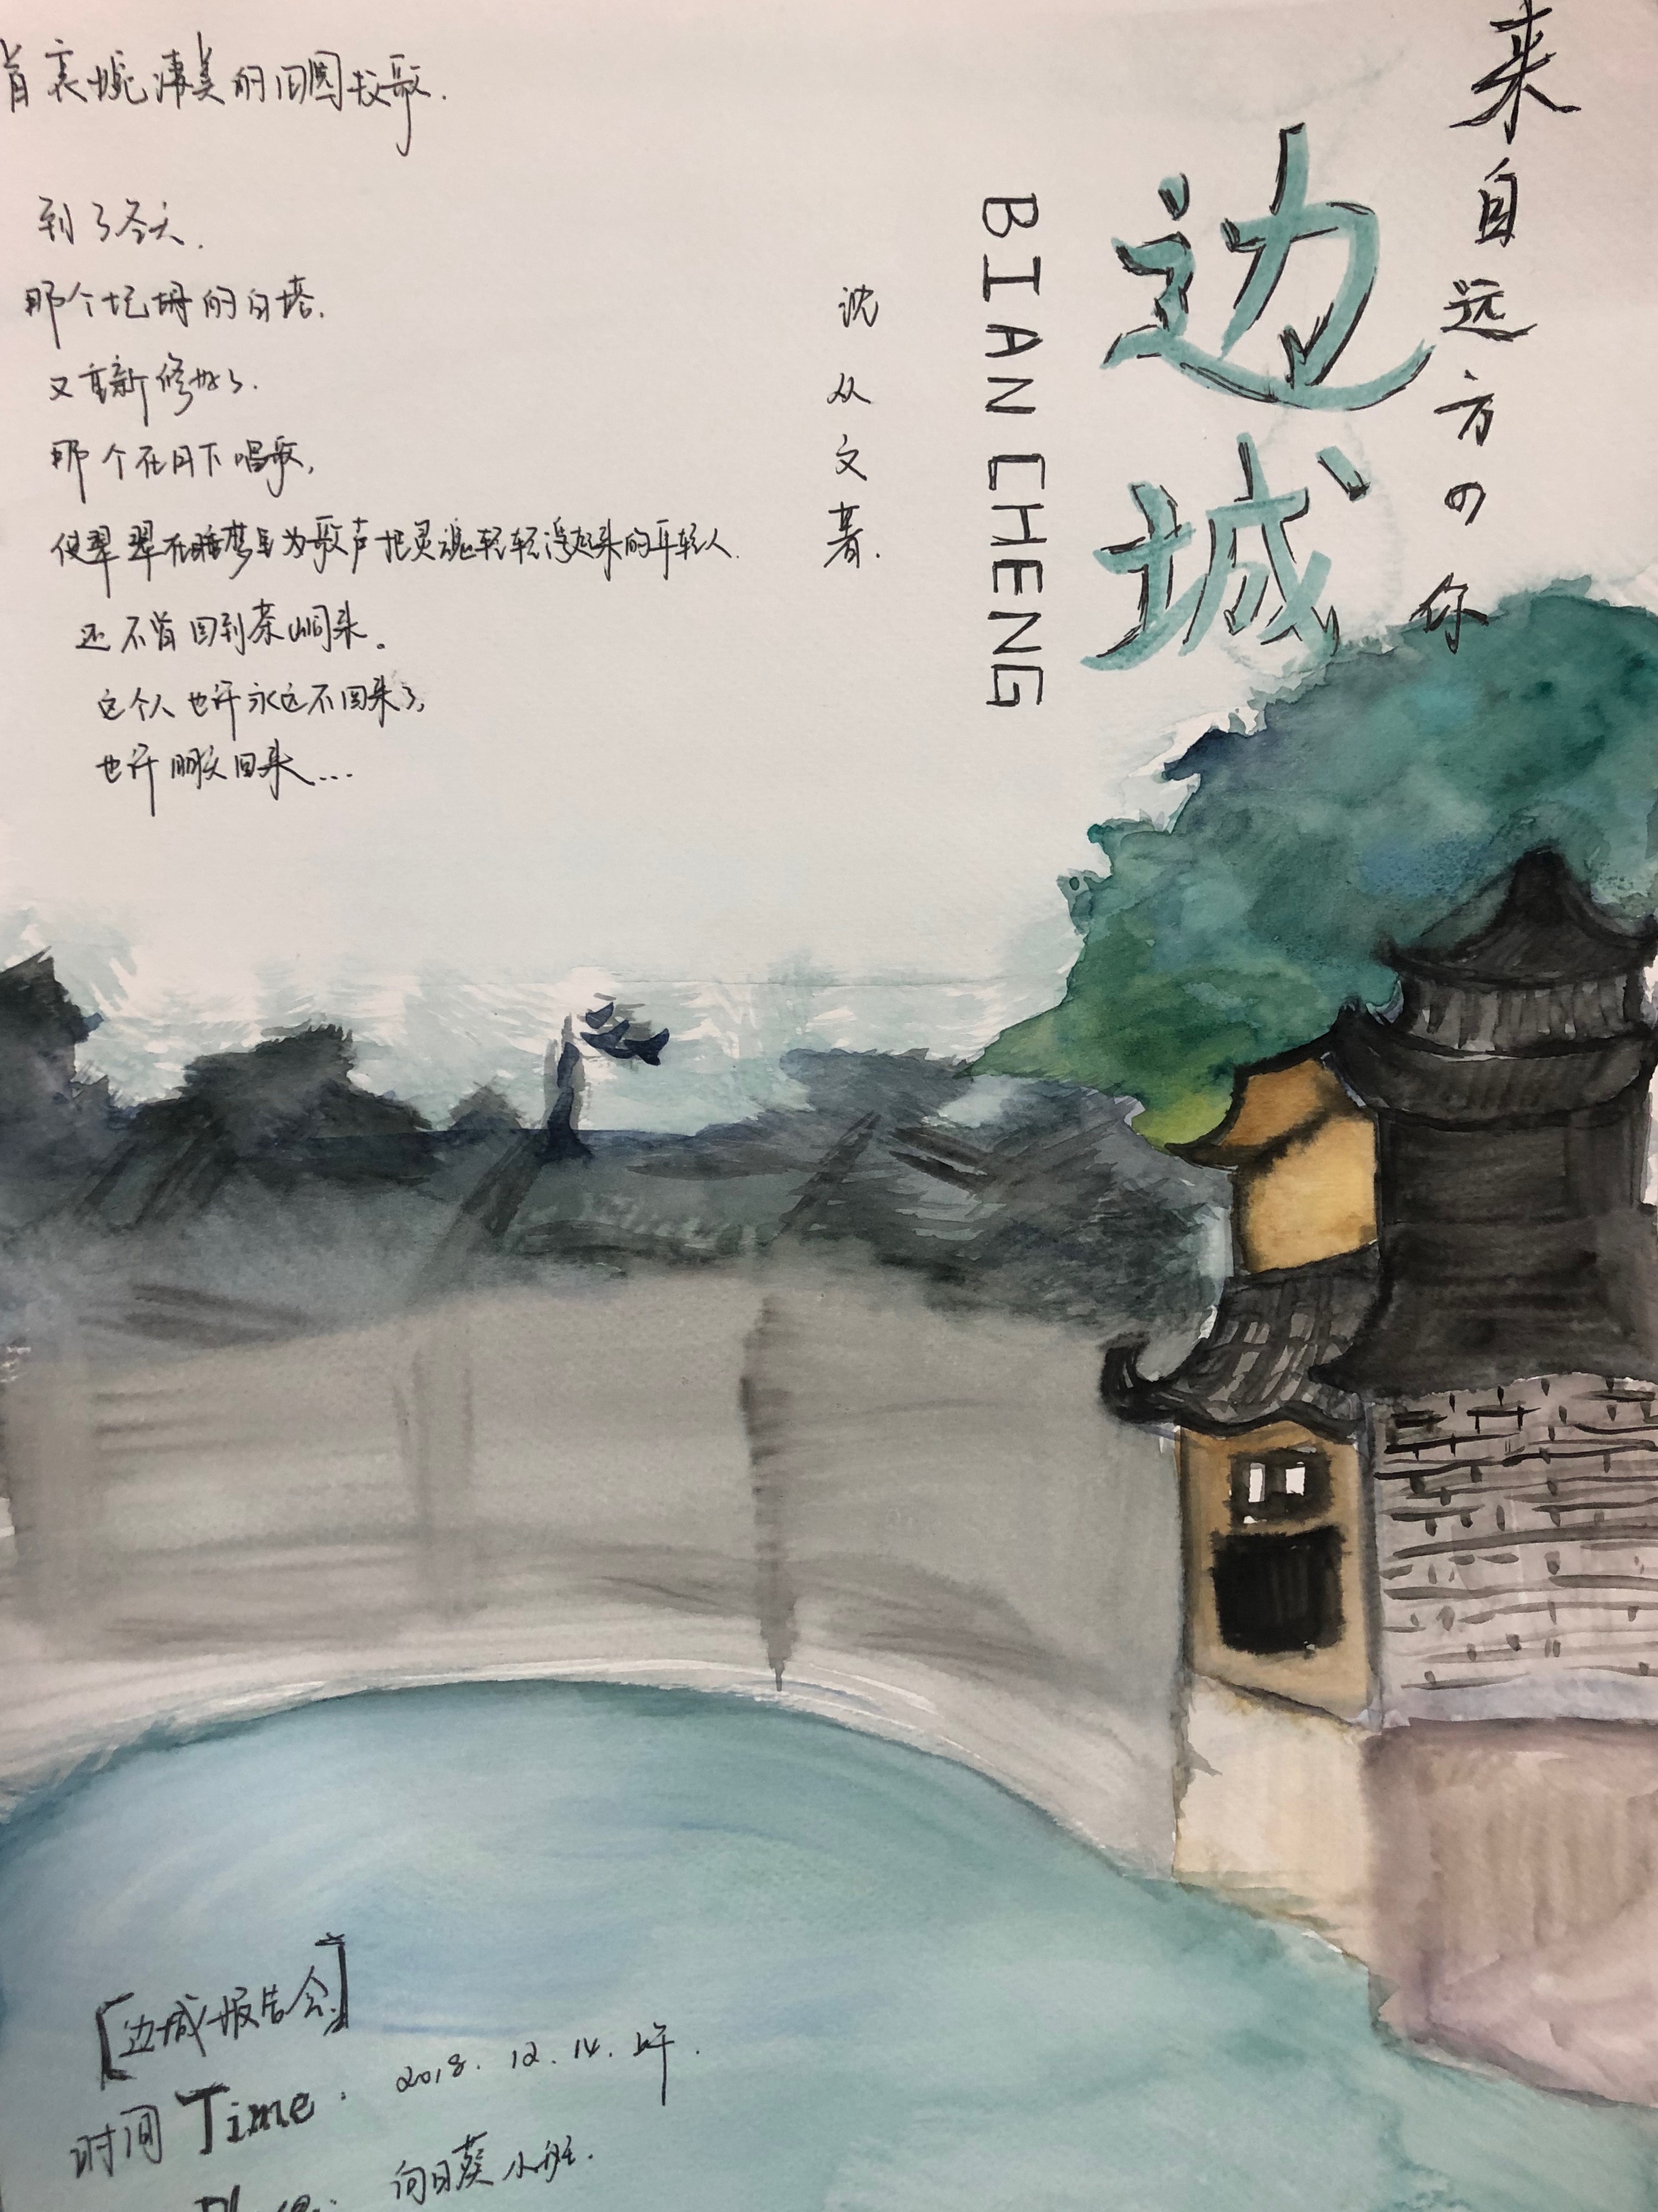 首哀婉凄美的田园牧歌.
到了冬天.
那个圮坍的白塔.
又重新修好了.
那个在月下唱歌,
使翠翠在睡梦里为歌声把灵魂轻轻浮起来的年轻人.
还不曾回到茶峒来。
这个人也许永远不回来了,
也许明天回来...
来自远方の你
边城
BIAN CHENG
沈从文著.
[边城报告会]
时间 Time: 2018.12.14.上午.
向日葵小班.